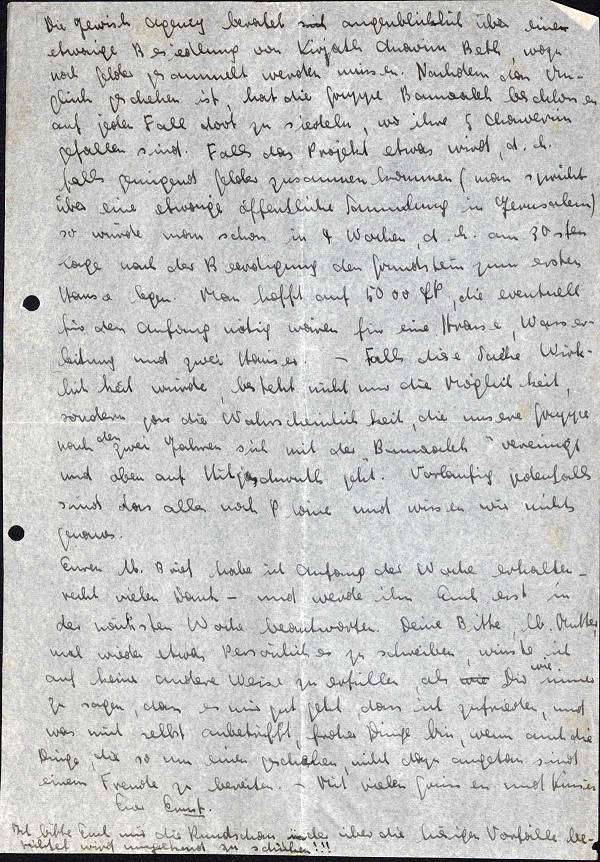 Die Jewish Agency beratet augenblicklich über eine
etwaige Besiedlung von Kirjath Anavim Beth, wozu
noch Gelder gesammelt werden müssen. Nachdem das Un-
glück geschehen ist, hat die Gruppe Bamaaleh beschlossen
auf jeden Fall dort zu siedeln, wo ihre 5 Chawerim
gefallen sind. Falls das Projekt etwas wird, d.h.
falls genügend Gelder zusammen kommen (man spricht
über eine etwaige öffentliche Sammlung in Jerusalem)
so würde man schon in 4 Wochen, d.h. am 30sten
Tage nach der Beerdigung den Grundstein zum ersten
Hause legen. Man hofft auf 5000 £P, die eventuell
für den Anfang nötig wären für eine Strasse, Wasser-
leitung und zwei Häuser. – Falls diese Sache Wirk-
lichkeit würde, besteht nicht nur die Möglichkeit,
sondern gar die Wahrscheinlichkeit, die unsere Gruppe
nach den zwei Jahren sich mit der Bamaaleh vereinigt
und oben auf Hitjaschwuth geht. Vorläufig jedenfalls
sind das alles noch Pläne und wissen wir nichts
genaues.
Euren lb. Brief habe ich Anfang der Woche erhalten –
recht vielen Dank – und werde ihn Euch erst in
der nächsten Woche beantworten. Deine Bitte, lb. Mutter,
mal wieder etwas Persönliches zu schreiben, wüsste ich
auf keine andere Weise zu erfüllen, als Dir wie immer
zu sagen, dass es mir gut geht, dass ich zufrieden, und
was mich selbst anbetrifft, froher Dinge bin, wenn auch die
Dinge, die so um einen geschehen, nicht dazu angetan sind
einem Freude zu bereiten. – Mit vielen Grüssen und Küssen
Euer Ernst.
Ich bitte Euch mir die Rundschau in der über die hiesigen Vorfälle be-
richtet wird umgehend zu schicken!!!